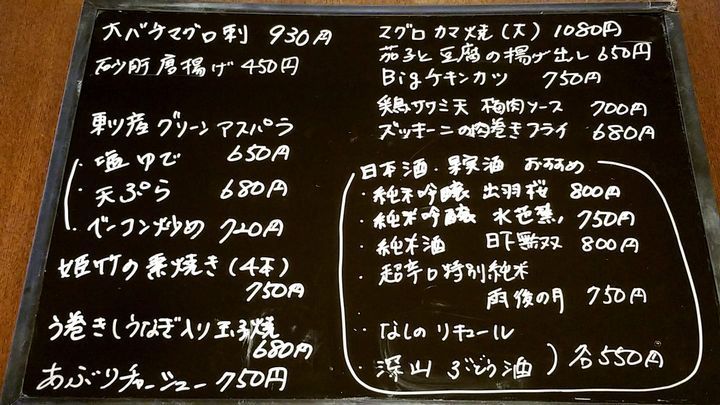 大バケマグロ刺 930円
砂肝唐揚げ 450円
東ツ産グリーンアスパラ
・塩ゆで 650円
・天ぷら 680円
・ベーコン炒め 720円
姫竹の素焼き(4本)
750円
う巻き(うなぎ入り玉子焼
680円
あぶりチャーシュー 750円
マグロカマ焼(大) 1080円
茄子と豆腐の揚げ出し 650円
Bigチキンカツ 750円
鶏ササミ天 梅肉ソース 700円
ズッキーニの肉巻きフライ 680円
日本酒・果実酒 おすすめ
・純米吟醸 出羽桜 800円
・純米吟醸 水芭蕉 750円
・純米酒 日下無双 800円
・超辛口特別純米
雨後の月 750円
・なしのリキュール
・深山ぶどう酒 ) 各550円